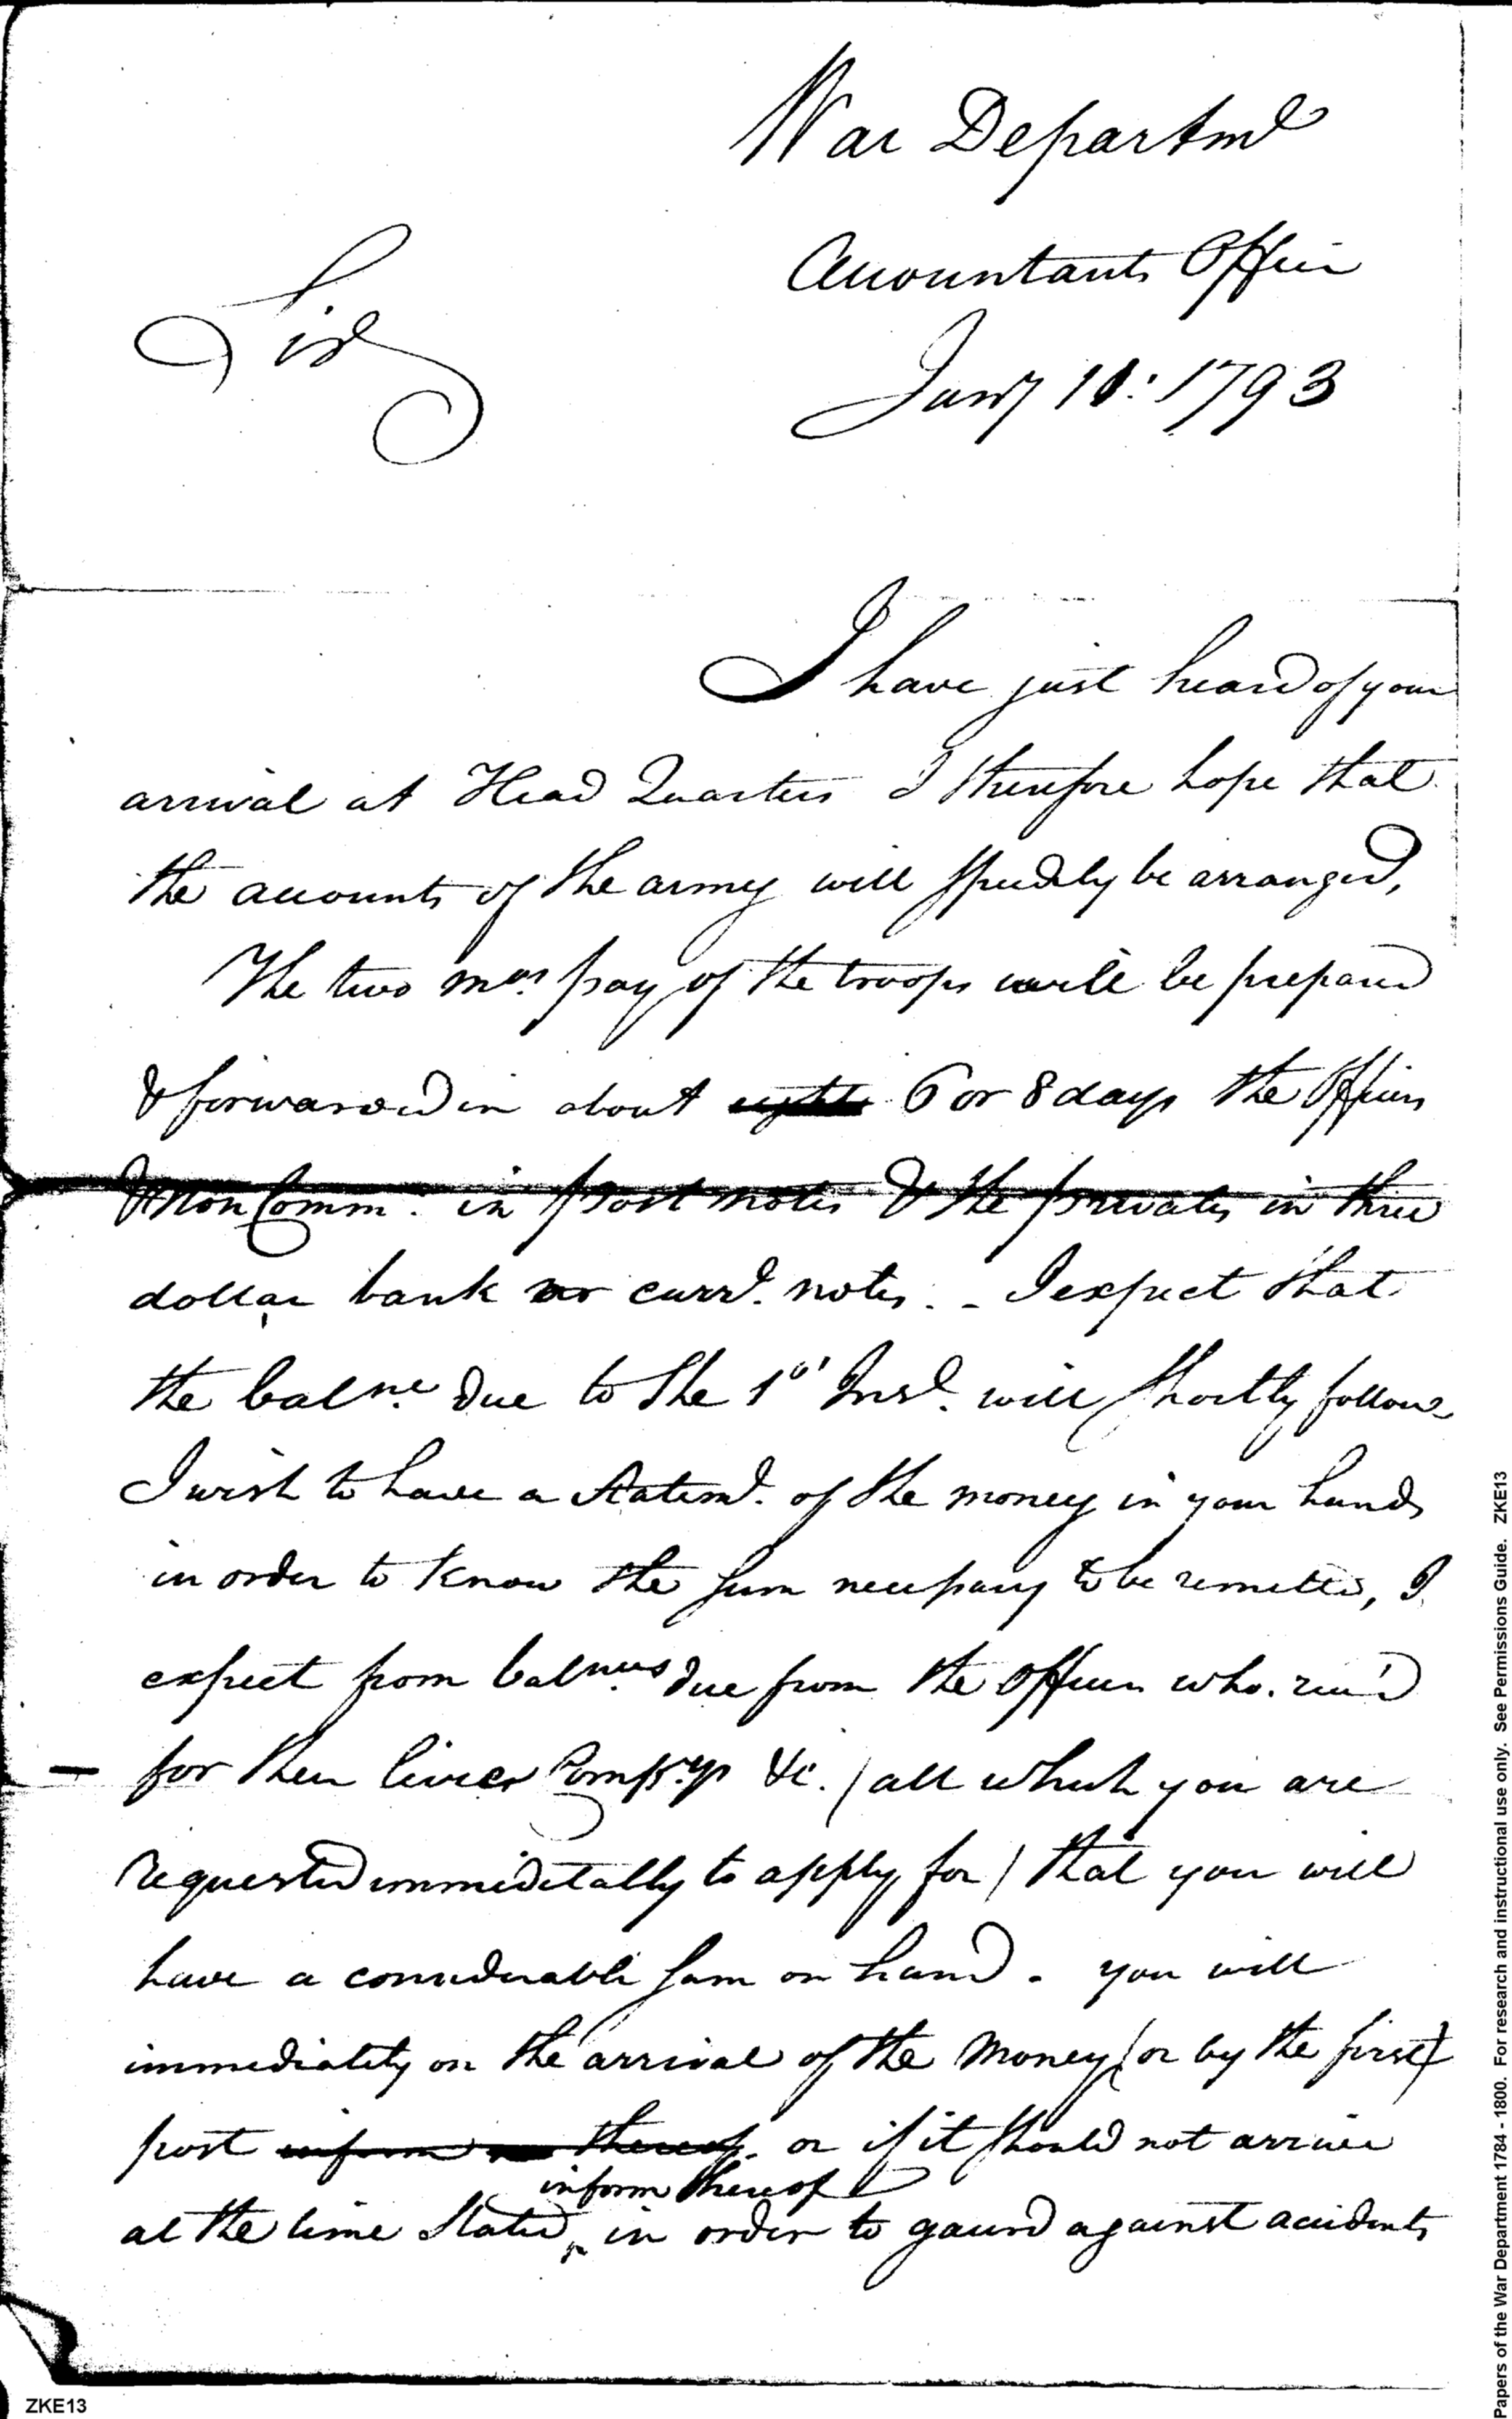 War Departmt
Accountants Office
Sir
Jany 11: 1793
I have just heard of your
arrival at Head Quarters I therefore hope that
the accounts of the army will speedily be arranged,
The two mos. pay of the troops will be prepared
& forwarded in about eight 6 or 8 days the Officers
& Non Comm. in post notes & the privates in three
dollar bank currt. notes. - I expect that
the balnce. due to the 1st Inst. will shortly follow
I wish to have a Statemt. of the money in your hands
in order to know the sum necessary to be remitted, I
expect from balnces due from the Officers who. recd
for their Compys &c. (all which you are
requested immeditally to apply for) that you will
have a considerable sum on hand. you will
immediately on the arrival of the money (or by the first)
post inform thereof. or if it should not arrive
inform thereof
at the time Stated, in order to gaurd against accidents
ZKE13
Papers of the War Department 1784 - 1800. For research and instructional use only. See Permissions Guide. ZKE13